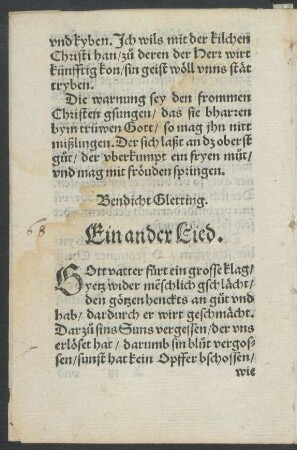 vnd kyben. Ich wils mit der kilchen
Christi han/ zů deren der Herr wirt
künfftig kon/ sin geist wöll vnns stät
tryben.
Die warnung sey den frommen
Christen gsungen/ das sie bharren
bym trüwen Gott/ so mag jhn nitt
mißlingen. Der sich laßt an dz oberst
gůt/ der vberkumpt ein fryen můt/
vnd mag mit fröuden springen.
Bendicht Gletting.
68
Ein ander Lied.
GOtt vatter fürt ein grosse klag/
yetz wider mēschlich gschlächt/
den götzen henckts an gůt vnd
hab/ dardurch er wirt geschmächt.
Dar zů sins Suns vergessen/ der vns
erlöset hat/ darumb sin blůt vergos-
sen/ sunst hat kein Opffer bschossen/
wie